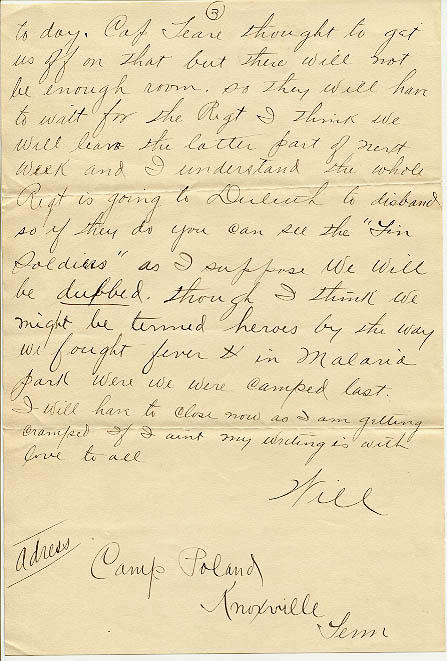 3
to day. Cap Teare thought to get
us off on that but there will not
be enough room. so they will have
to wait for the Rigt I think we
will leave the latter part of next
week and I understand the whole
Rigt is going to Duluth to disband
so if they do you can see the "Tin
Soldiers" as I suppose We Will
be dubbed. though I think we
might be termed heroes by the way
we fought fever & in Malaria
park Were we were camped last.
I will have to close now as I am getting
cramped If I aint my writing is with
love to all
Will
Adress
Camp Poland
Knoxville
Tenn